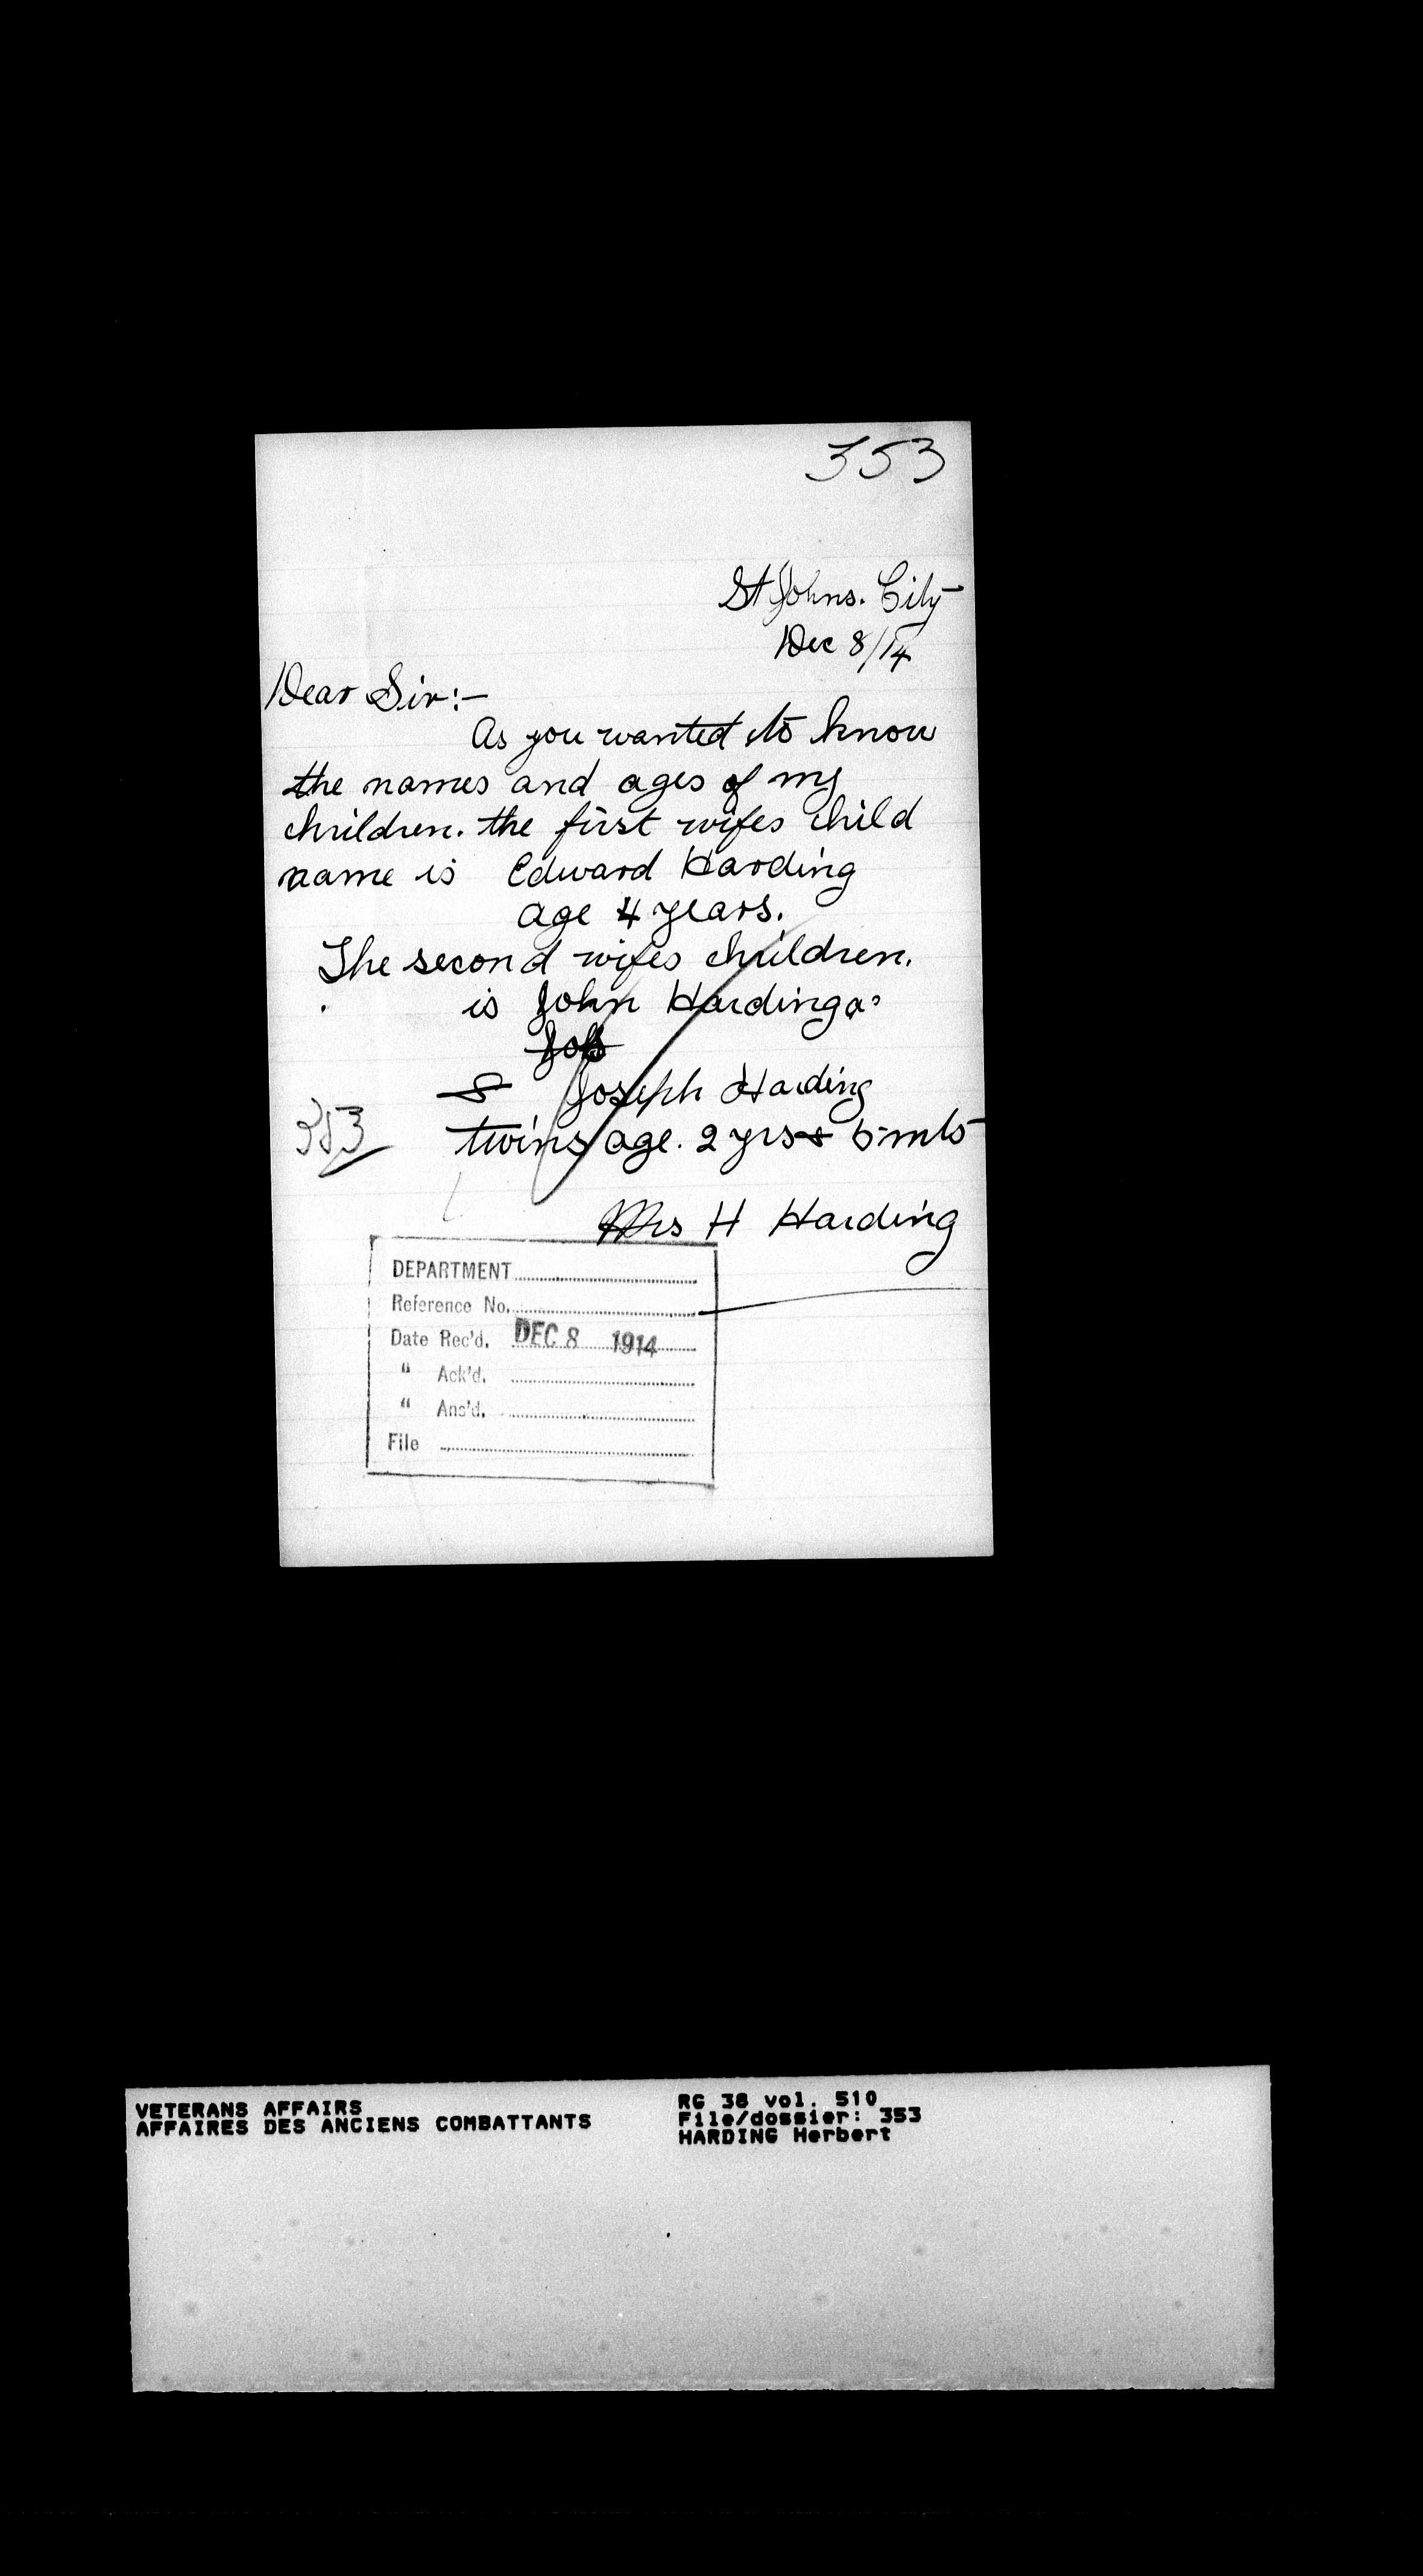 353
St Johns. City
Dec 8/14
Dear Sir:-
As you wanted to know
the names and ages of my
children. the first wifes child
name is Edward Harding
age 4 years.
The second wifes children.
is John Harding
& Joseph Harding
353
twins age. 2 yrs & 5 mts
Mrs H Harding
DEPARTMENT
Reference No.
Date Rec'd. DEC 8 1914
" Ack'd.
" Ans'd.
File
VETERANS AFFAIRS
AFFAIRES DES ANCIENS COMBATTANTS
RG 38 vol. 510
File/dossier: 353
HARDING Herbert